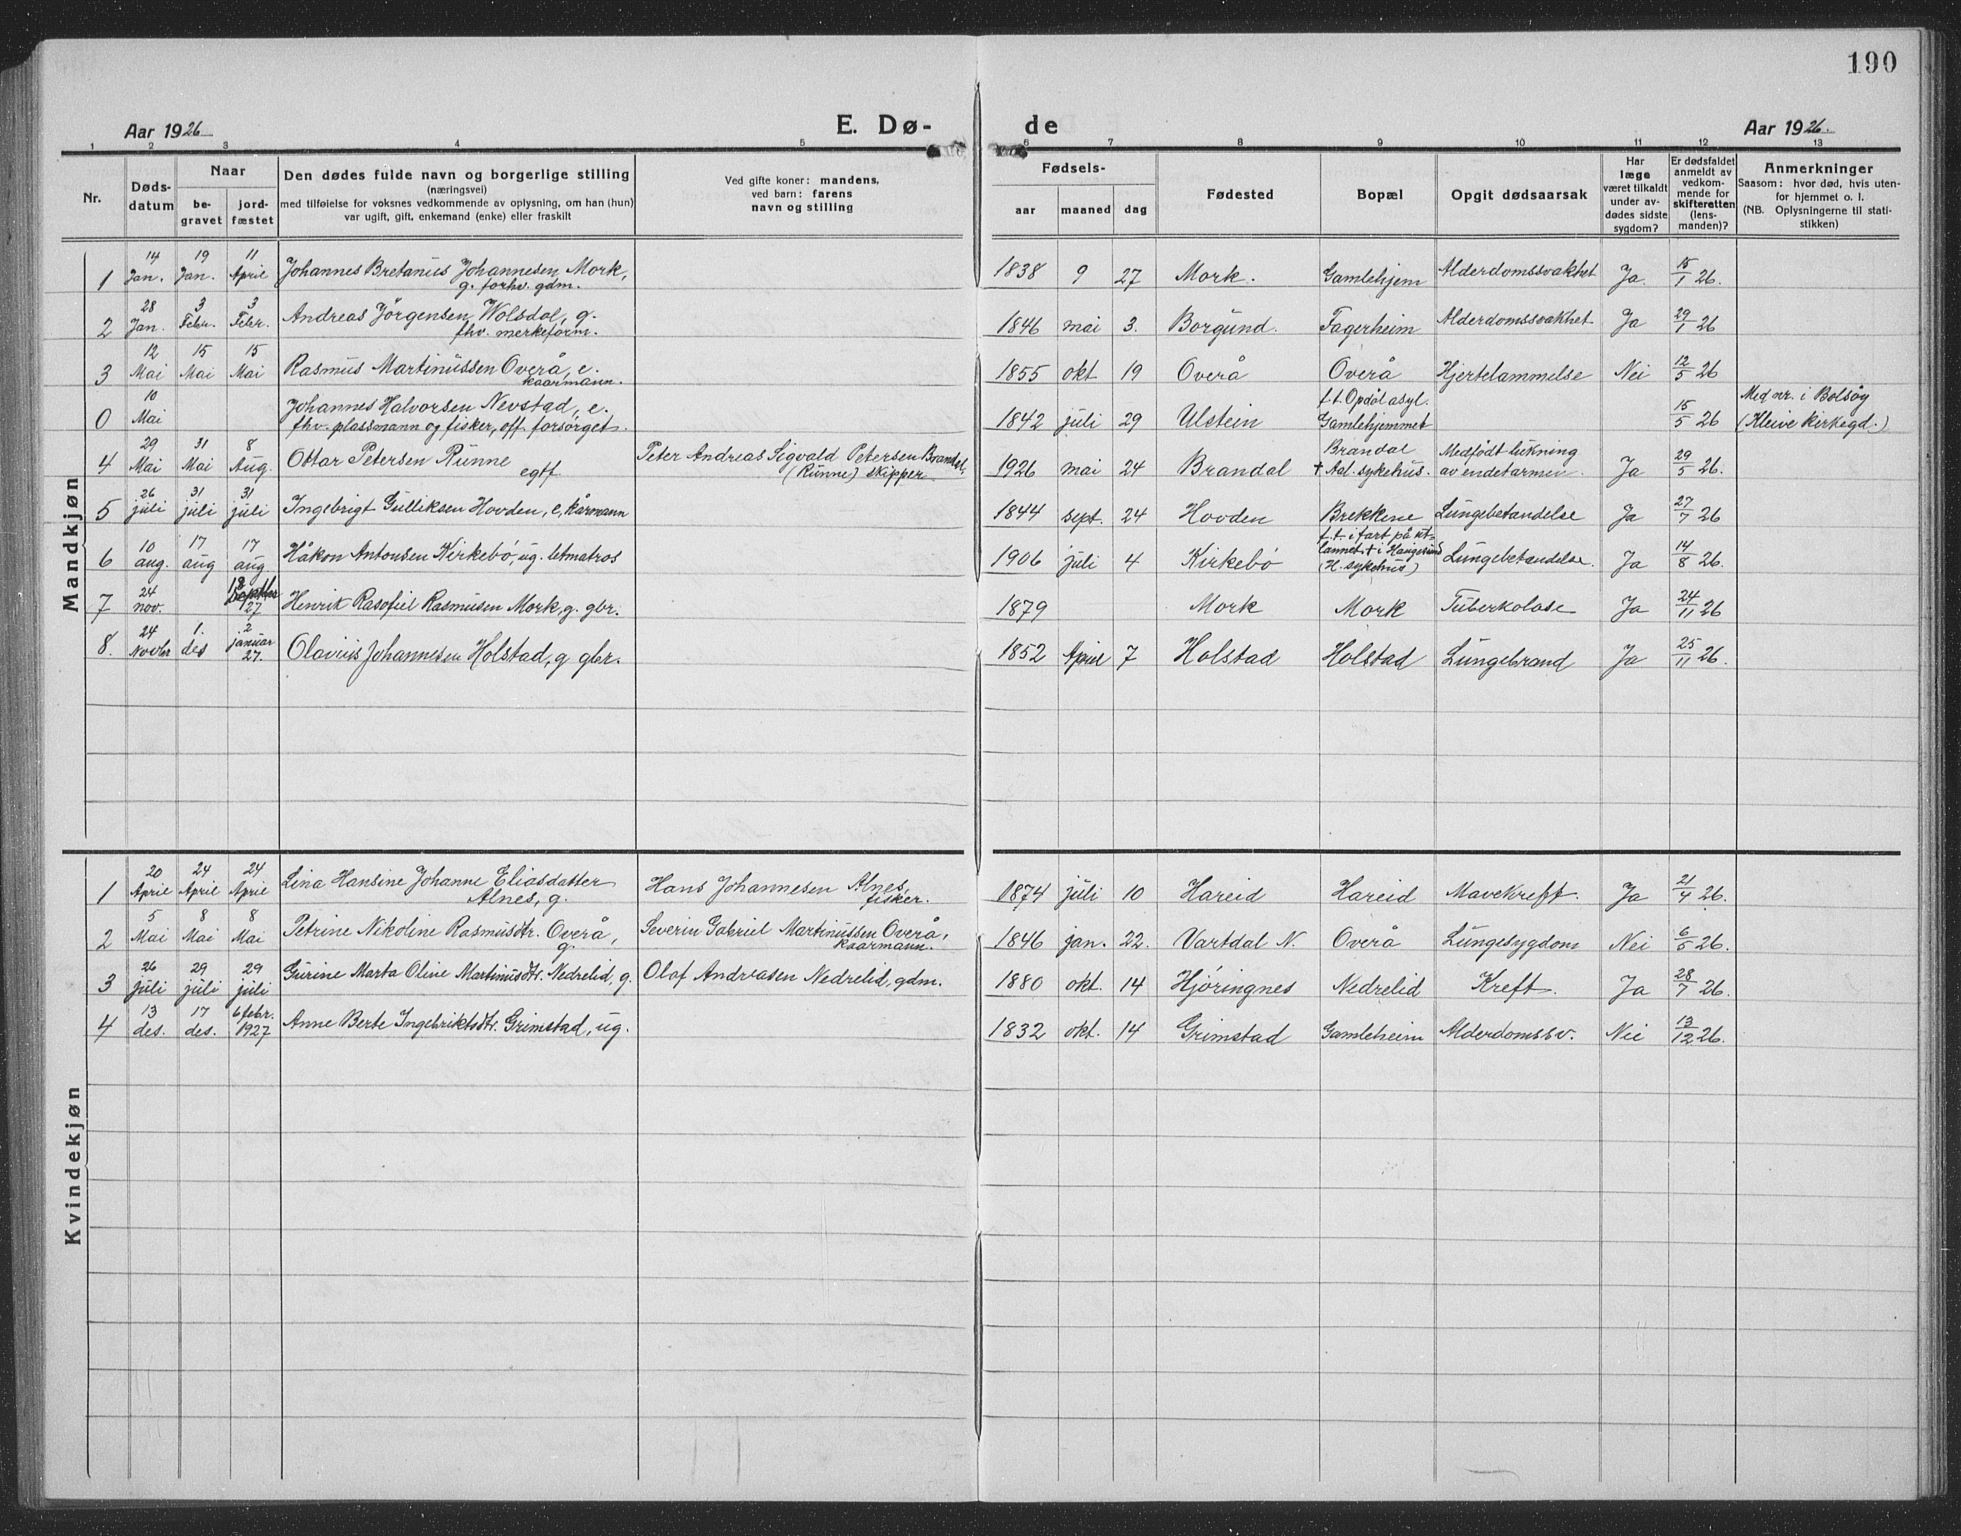 190
Aar 1926 E. Dø- de Aar 1926.
1 2 3 4 5 6 7 8 9 10 11 12 13
Nr. Døds-datum Naar be-gravet jord-fæstet Den dødes fulde navn og borgerlige stilling (næringsvei) med tilføielse for voksnes vedkommende av oplysning, om han (hun) var ugift, gift, enkemand (enke) eller fraskilt Ved gifte koner: mandens, ved barn: farens navn og stilling Fødsels- aar maaned dag Fødested Bopæl Opgit dødsaarsak Har læge været tilkaldt under av-dødes sidste sygdom? Er dødsfaldet anmeldt av vedkom-mende for skifteretten (lens-manden)? Anmerkninger Saasom: hvor død, hvis uten-for hjemmet o. l. (NB. Oplysningerne til stati-stikken)
Mandkjøn
1 14 Jan. 19 Jan. 11 April Johannes Bretanus Johannesen Mork, g. forhv. gdm. 1838 9 27 Mork. Gamlehjem Alderdomssvakhet Ja. 15/1 26.
2 28 Jan. 3 Febr. 3 Febr. Andreas Jörgensen Wolsdal, g. fhv. merkeform. 1846 mai 3. Borgund. Fagerheim Alderdomssvakhet Ja 29/1 26
3 12 Mai 15 Mai 15 Mai Rasmus Martinussen Overå, e. kaarmann. 1855 okt 19 Overå Overå Hjertelammelse Nei 12/5 26
0 10 Mai Johannes Halvorsen Nevstad, e. fhv. plassmann og fisker, off. forsörget. 1842 juli 29 Ulstein f.t. Opdöl asyl. Gamlehjemmet 15/5 26 Med nr. i Bolsöy (Kleive kirkegd.)
4 29 Mai 31 Mai 8 Aug. Ottar Petersen Runne egtf Peter Andreas Sigvald Petersen Brandal, (Runne) skipper 1926 mai 24 Brandal Brandal † Aal. sykehus. Medfödt lukning av endetarmen. Ja 29/5 26.
5 26 juli 31 juli 31 juli Ingebrigt Gulliksen Hovden, e, kårmann 1844 sept. 24 Hovden Brekkene Lungebetendelse Ja 27/7 26
6 10 aug. 17 aug 17 aug. Håkon Antonsen Kirkebö, ug. letmatros 1906 juli 4 Kirkebö f.t i fart på ut-lannet † i Haugesund (H. sykehus) Lungebetendelse. Ja 14/8 26.
7 24 nov. 27 Henrik Rasofiel Rasmusen Mork, g. gbr. 1879 Mork Mork Tuberkolose Ja 24/11 26
8. 24 Novbr 1. des 2 januar 27. Olavius Johannesen Holstad, g gbr. 1852 April 7 Holstad Holstad Lungebrand Ja 25/11 26.
Kvindekjøn
1 20 April 24 April 24 April Lina Hansine Johanne Eliasdatter Alnes, g. Hans Johannesen Alnes, fisker. 1874 juli 10 Hareid Hareid Mavekreft. Ja 21/4 26.
2 5 Mai 8 Mai 8 Mai Petrine Nikoline Rasmusdtr. Overå, g. Severin Gabriel Martinussen Overå, kaarmann. 1846 jan. 22. Vartdal N. Overå Lungesygdom Nei 6/5 26.
3 26 juli 29 juli 29 juli Gurine Marta Oline Martinusdtr. Nedrelid, g. Olaf Andreasen Nedrelid, gdm. 1880 okt. 14 Hjöringnes Nedrelid Kreft. Ja 28/7 26.
4 13 des. 17 des. 6 febr. 1927 Anne Berte Ingebriktsdtr. Grimstad, ug. 1832 okt. 14 Grimstad Gamleheim Alderdomssv. Nei 13/12 26.